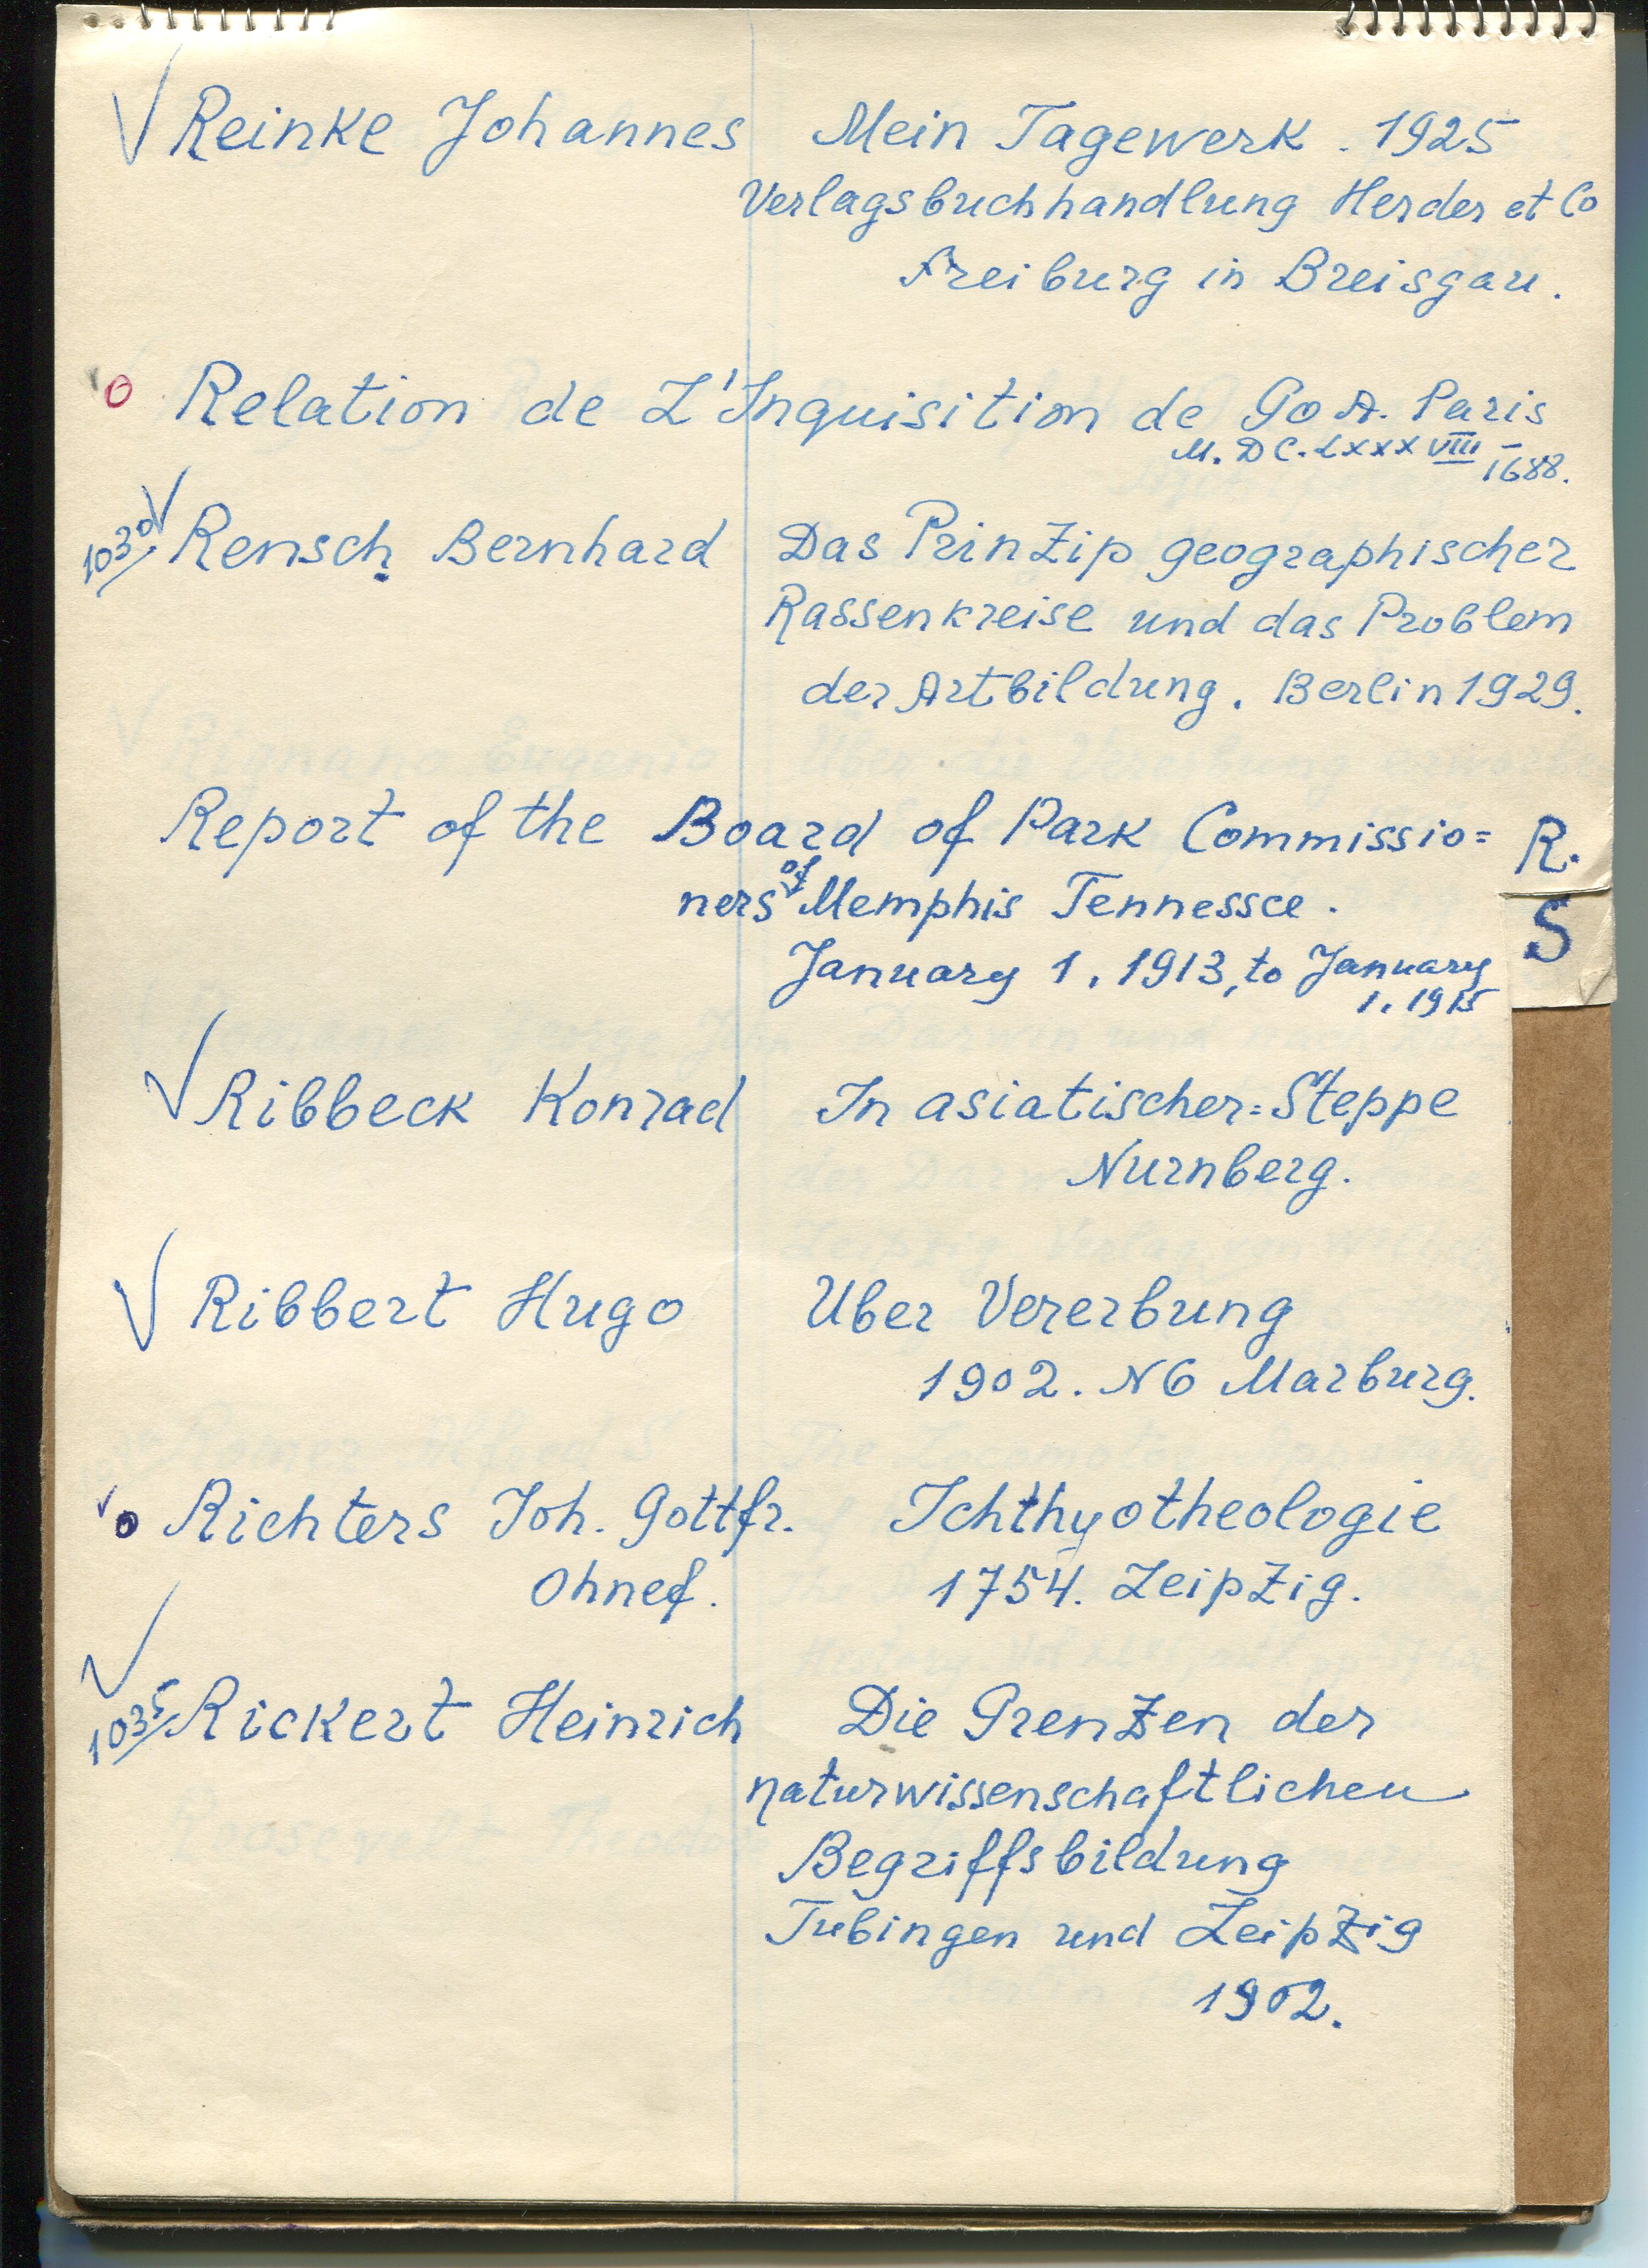 √ Reinke Johannes Mein Tagewerk. 1925
Verlagsbuchhandlung Herder et Co
Freiburg in Breisgau.
o Relation de L'Inquisition de GoA. Paris
M. DC. LXXXVIII 1688.
1030 √ Rensch Bernhard Das Prinzip geographischer
Rassenkreise und das Problem
der Artbildung. Berlin 1929.
Report of the Board of Park Commissio=
ners of Memphis Tennessee.
January 1, 1913, to January
1, 1915
R.
S
√ Ribbeck Konrad In asiatischer=Steppe
Nurnberg.
√ Ribbert Hugo Uber Vererbung
1902. NG Marburg.
√ o Richters Joh. Gottfr. Ichthyotheologie
Ohnef. 1754. Leipzig.
√
1035 Rickert Heinrich Die Grenzen der
naturwissenschaftlichen
Begriffsbildung
Tübingen und Leipzig
1902.